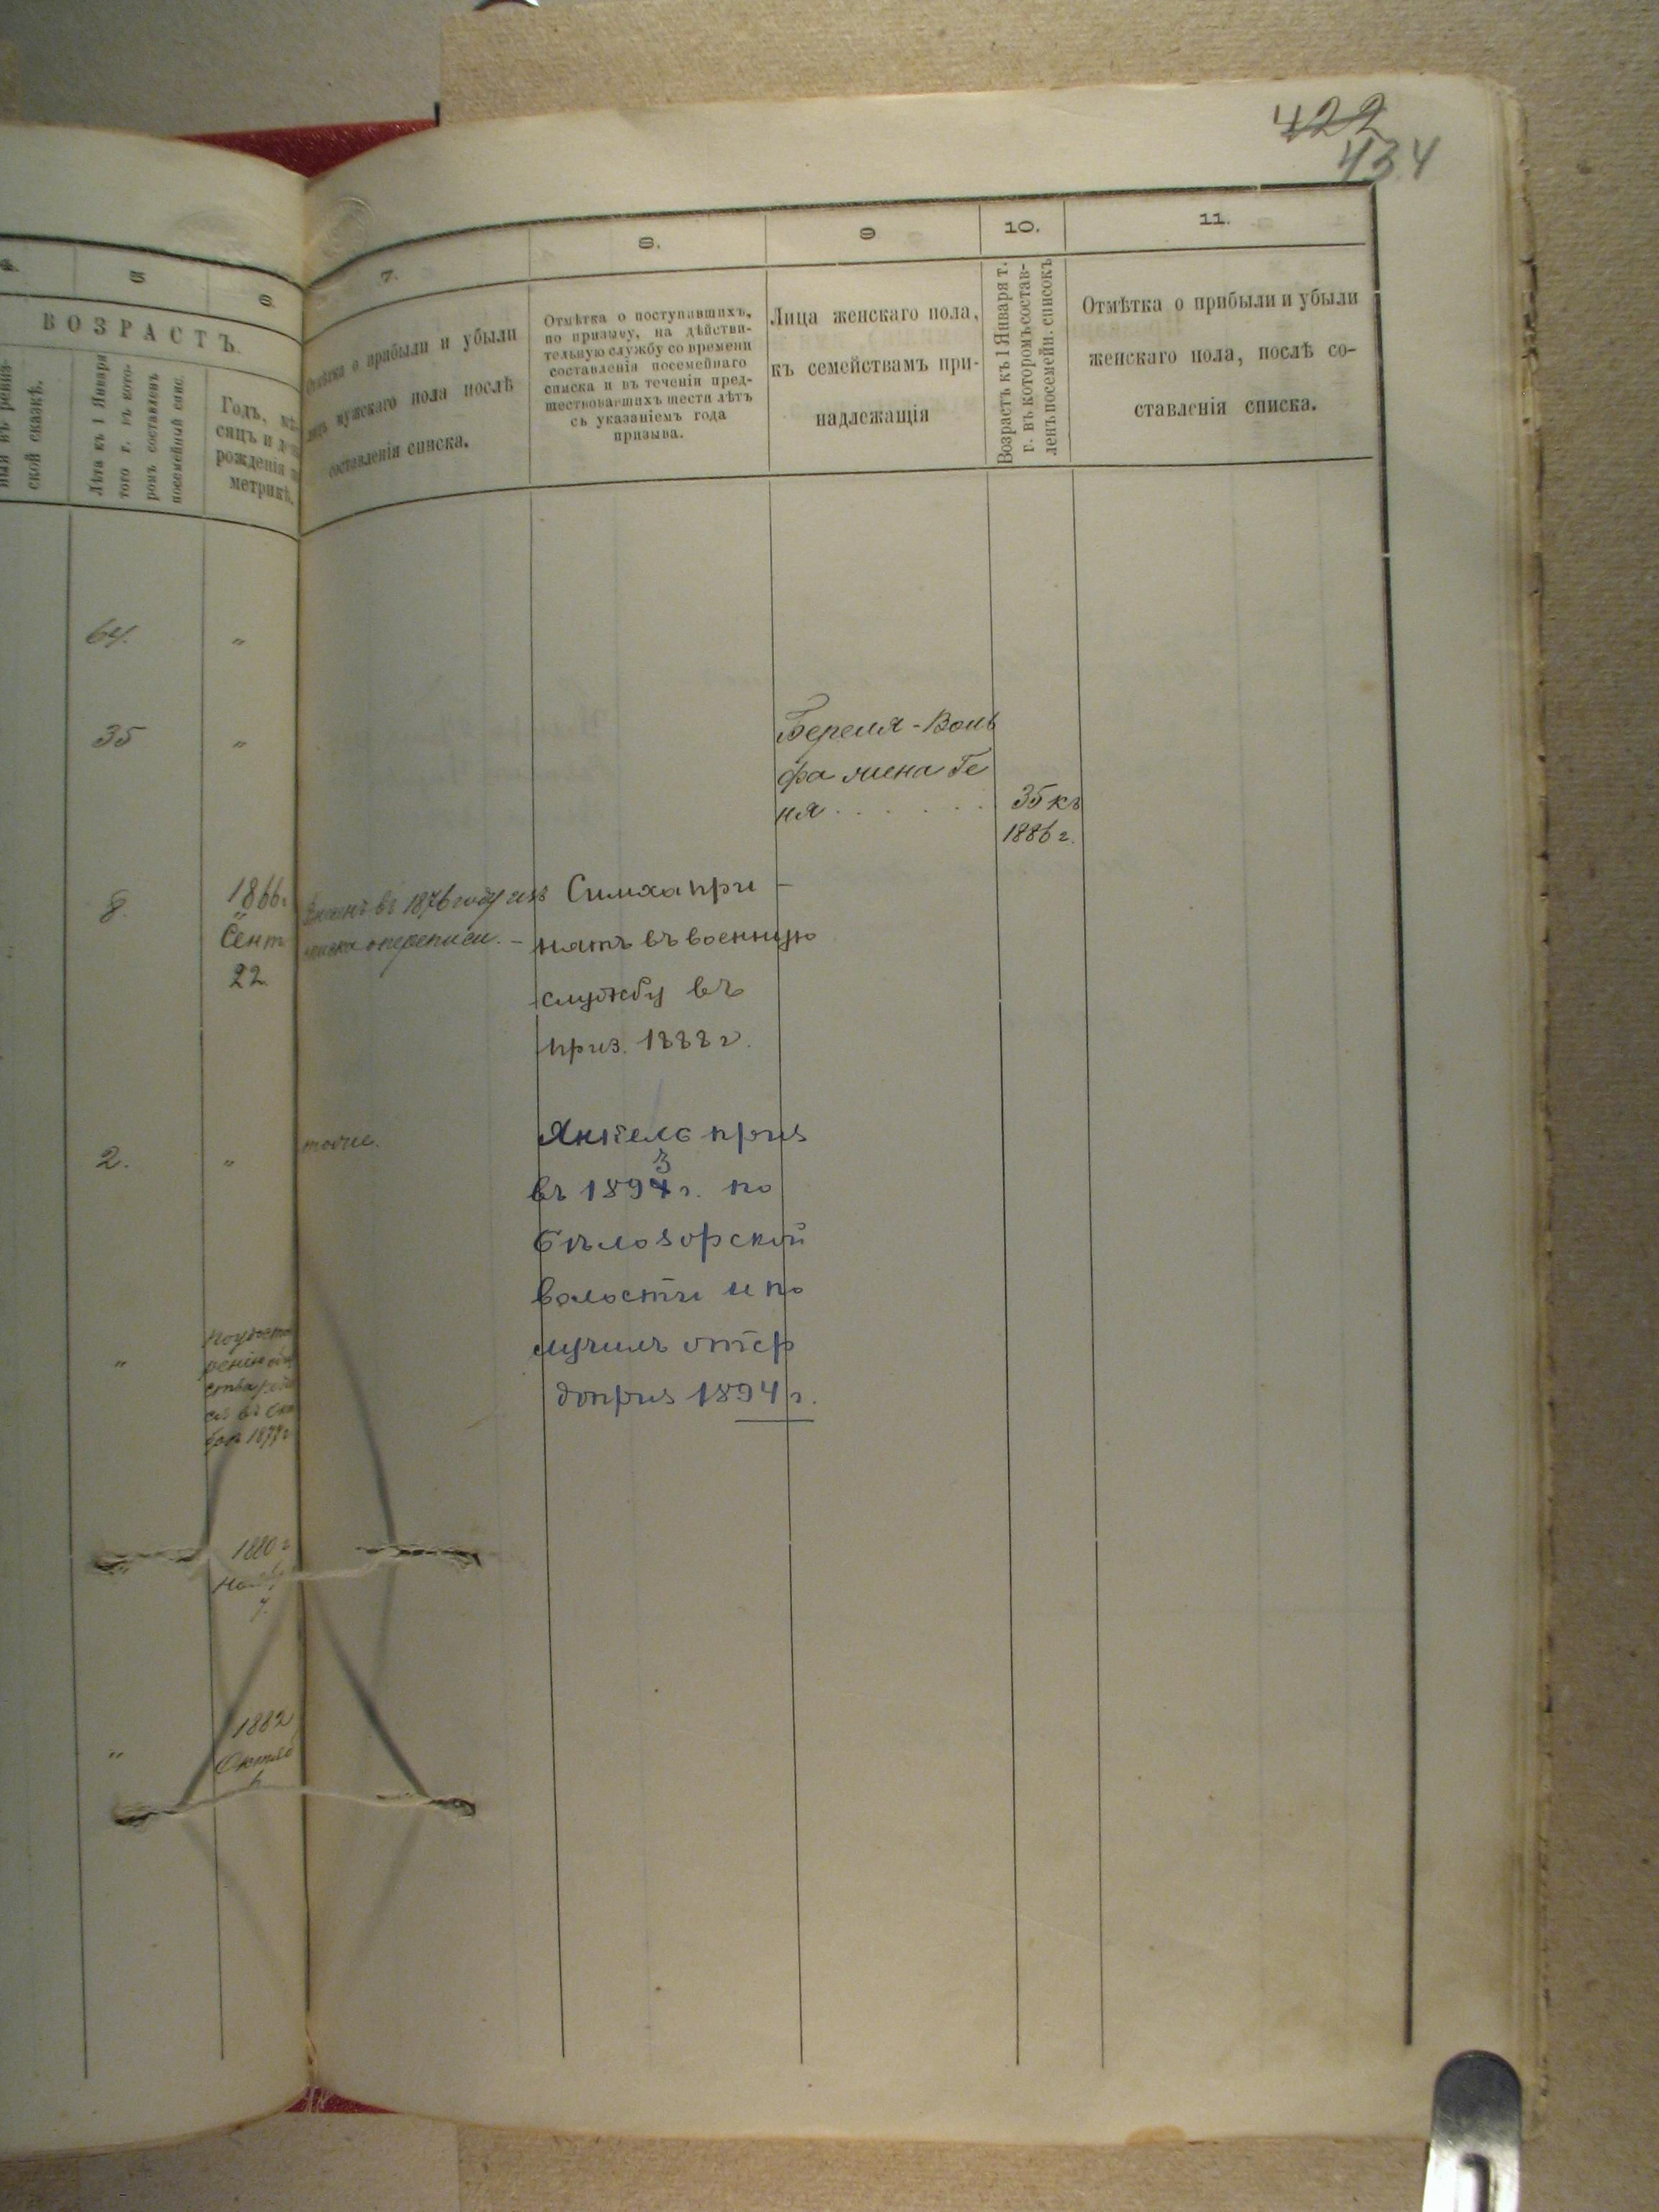 422
434
4.
5
6
7.
8.
9
10.
11.
ВОЗРАСТЪ.
ской сказкѣ.
Лѣта къ 1 Января
того г. въ кото-
ромъ составленъ
посемейный спис.
Годъ, мѣ-
сяцъ и день
рожденія по
метрикѣ.
Отмѣтка о прибыли и убыли
лицъ мужскаго пола послѣ
составленія списка.
Отмѣтка о поступавшихъ,
по призыву, на дѣйстви-
тельную службу со времени
составленія посемейнаго
списка и въ теченіи пред-
шествовавшихъ шести лѣтъ
съ указаніемъ года
призыва.
Лица женскаго пола,
къ семействамъ при-
надлежащія
Возрастъ къ 1 Января т.
г. въ которомъ состав-
ленъ посемейн. списокъ
Отмѣтка о прибыли и убыли
женскаго пола, послѣ со-
ставленія списка.
64. "
35 "
Береля-Воль
фа жена Ге
ня . . . . . .
35 къ
1886 г.
8.
1866 г
Сент
22.
въ 1876 году изъ
переписи. -
Симха при-
нятъ въ военную
службу въ
приз. 1888 г.
2. "
тоже.
Янкель приз
3
въ 1894 г. по
Бѣлозорской
волости и по
лучилъ отср
до приз 1894 г.
"
1877 г
1880 г
"
1882